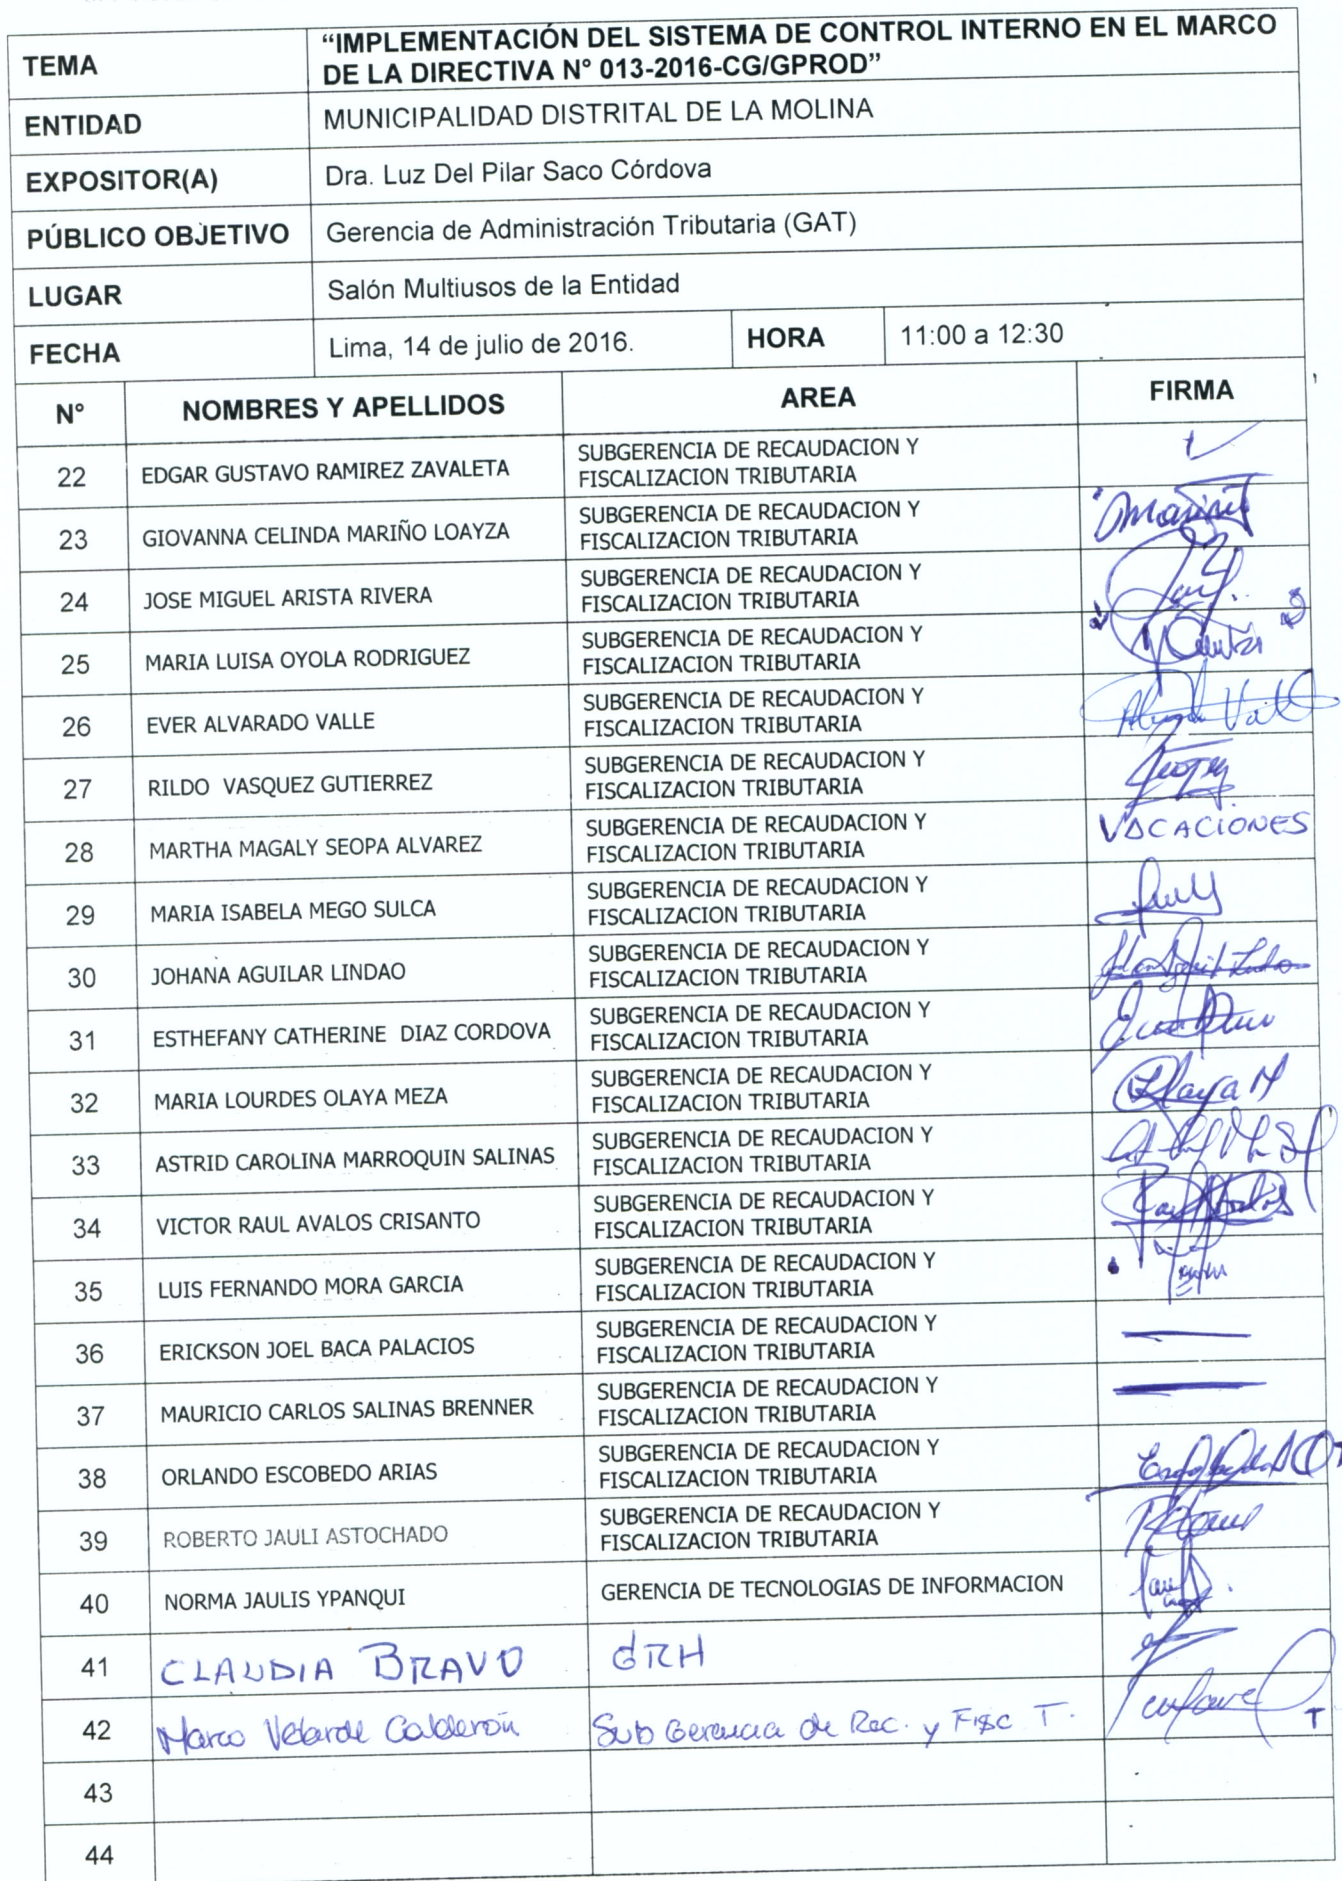 TEMA
"IMPLEMENTACIÓN DEL SISTEMA DE CONTROL INTERNO EN EL MARCO
DE LA DIRECTIVA N° 013-2016-CG/GPROD"
ENTIDAD
MUNICIPALIDAD DISTRITAL DE LA MOLINA
EXPOSITOR(A)
Dra. Luz Del Pilar Saco Córdova
PÚBLICO OBJETIVO
Gerencia de Administración Tributaria (GAT)
LUGAR
Salón Multiusos de la Entidad
FECHA
Lima, 14 de julio de 2016.
HORA
11:00 a 12:30
N° NOMBRES Y APELLIDOS AREA FIRMA
22 EDGAR GUSTAVO RAMIREZ ZAVALETA SUBGERENCIA DE RECAUDACION Y
FISCALIZACION TRIBUTARIA
23 GIOVANNA CELINDA MARIÑO LOAYZA SUBGERENCIA DE RECAUDACION Y
FISCALIZACION TRIBUTARIA
24 JOSE MIGUEL ARISTA RIVERA SUBGERENCIA DE RECAUDACION Y
FISCALIZACION TRIBUTARIA
25 MARIA LUISA OYOLA RODRIGUEZ SUBGERENCIA DE RECAUDACION Y
FISCALIZACION TRIBUTARIA
26 EVER ALVARADO VALLE SUBGERENCIA DE RECAUDACION Y
FISCALIZACION TRIBUTARIA
27 RILDO VASQUEZ GUTIERREZ SUBGERENCIA DE RECAUDACION Y
FISCALIZACION TRIBUTARIA
28 MARTHA MAGALY SEOPA ALVAREZ SUBGERENCIA DE RECAUDACION Y
FISCALIZACION TRIBUTARIA
VACACIONES
29 MARIA ISABELA MEGO SULCA SUBGERENCIA DE RECAUDACION Y
FISCALIZACION TRIBUTARIA
30 JOHANA AGUILAR LINDAO SUBGERENCIA DE RECAUDACION Y
FISCALIZACION TRIBUTARIA
31 ESTHEFANY CATHERINE DIAZ CORDOVA SUBGERENCIA DE RECAUDACION Y
FISCALIZACION TRIBUTARIA
32 MARIA LOURDES OLAYA MEZA SUBGERENCIA DE RECAUDACION Y
FISCALIZACION TRIBUTARIA
Olaya M
33 ASTRID CAROLINA MARROQUIN SALINAS SUBGERENCIA DE RECAUDACION Y
FISCALIZACION TRIBUTARIA
34 VICTOR RAUL AVALOS CRISANTO SUBGERENCIA DE RECAUDACION Y
FISCALIZACION TRIBUTARIA
35 LUIS FERNANDO MORA GARCIA SUBGERENCIA DE RECAUDACION Y
FISCALIZACION TRIBUTARIA
36 ERICKSON JOEL BACA PALACIOS SUBGERENCIA DE RECAUDACION Y
FISCALIZACION TRIBUTARIA
37 MAURICIO CARLOS SALINAS BRENNER SUBGERENCIA DE RECAUDACION Y
FISCALIZACION TRIBUTARIA
38 ORLANDO ESCOBEDO ARIAS SUBGERENCIA DE RECAUDACION Y
FISCALIZACION TRIBUTARIA
39 ROBERTO JAULI ASTOCHADO SUBGERENCIA DE RECAUDACION Y
FISCALIZACION TRIBUTARIA
40 NORMA JAULIS YPANQUI GERENCIA DE TECNOLOGIAS DE INFORMACION
41 CLAUDIA BRAVO GRH
42 Marco Velarde Calderón Sub Gerencia de Rec. y Fisc T.
T
43
44